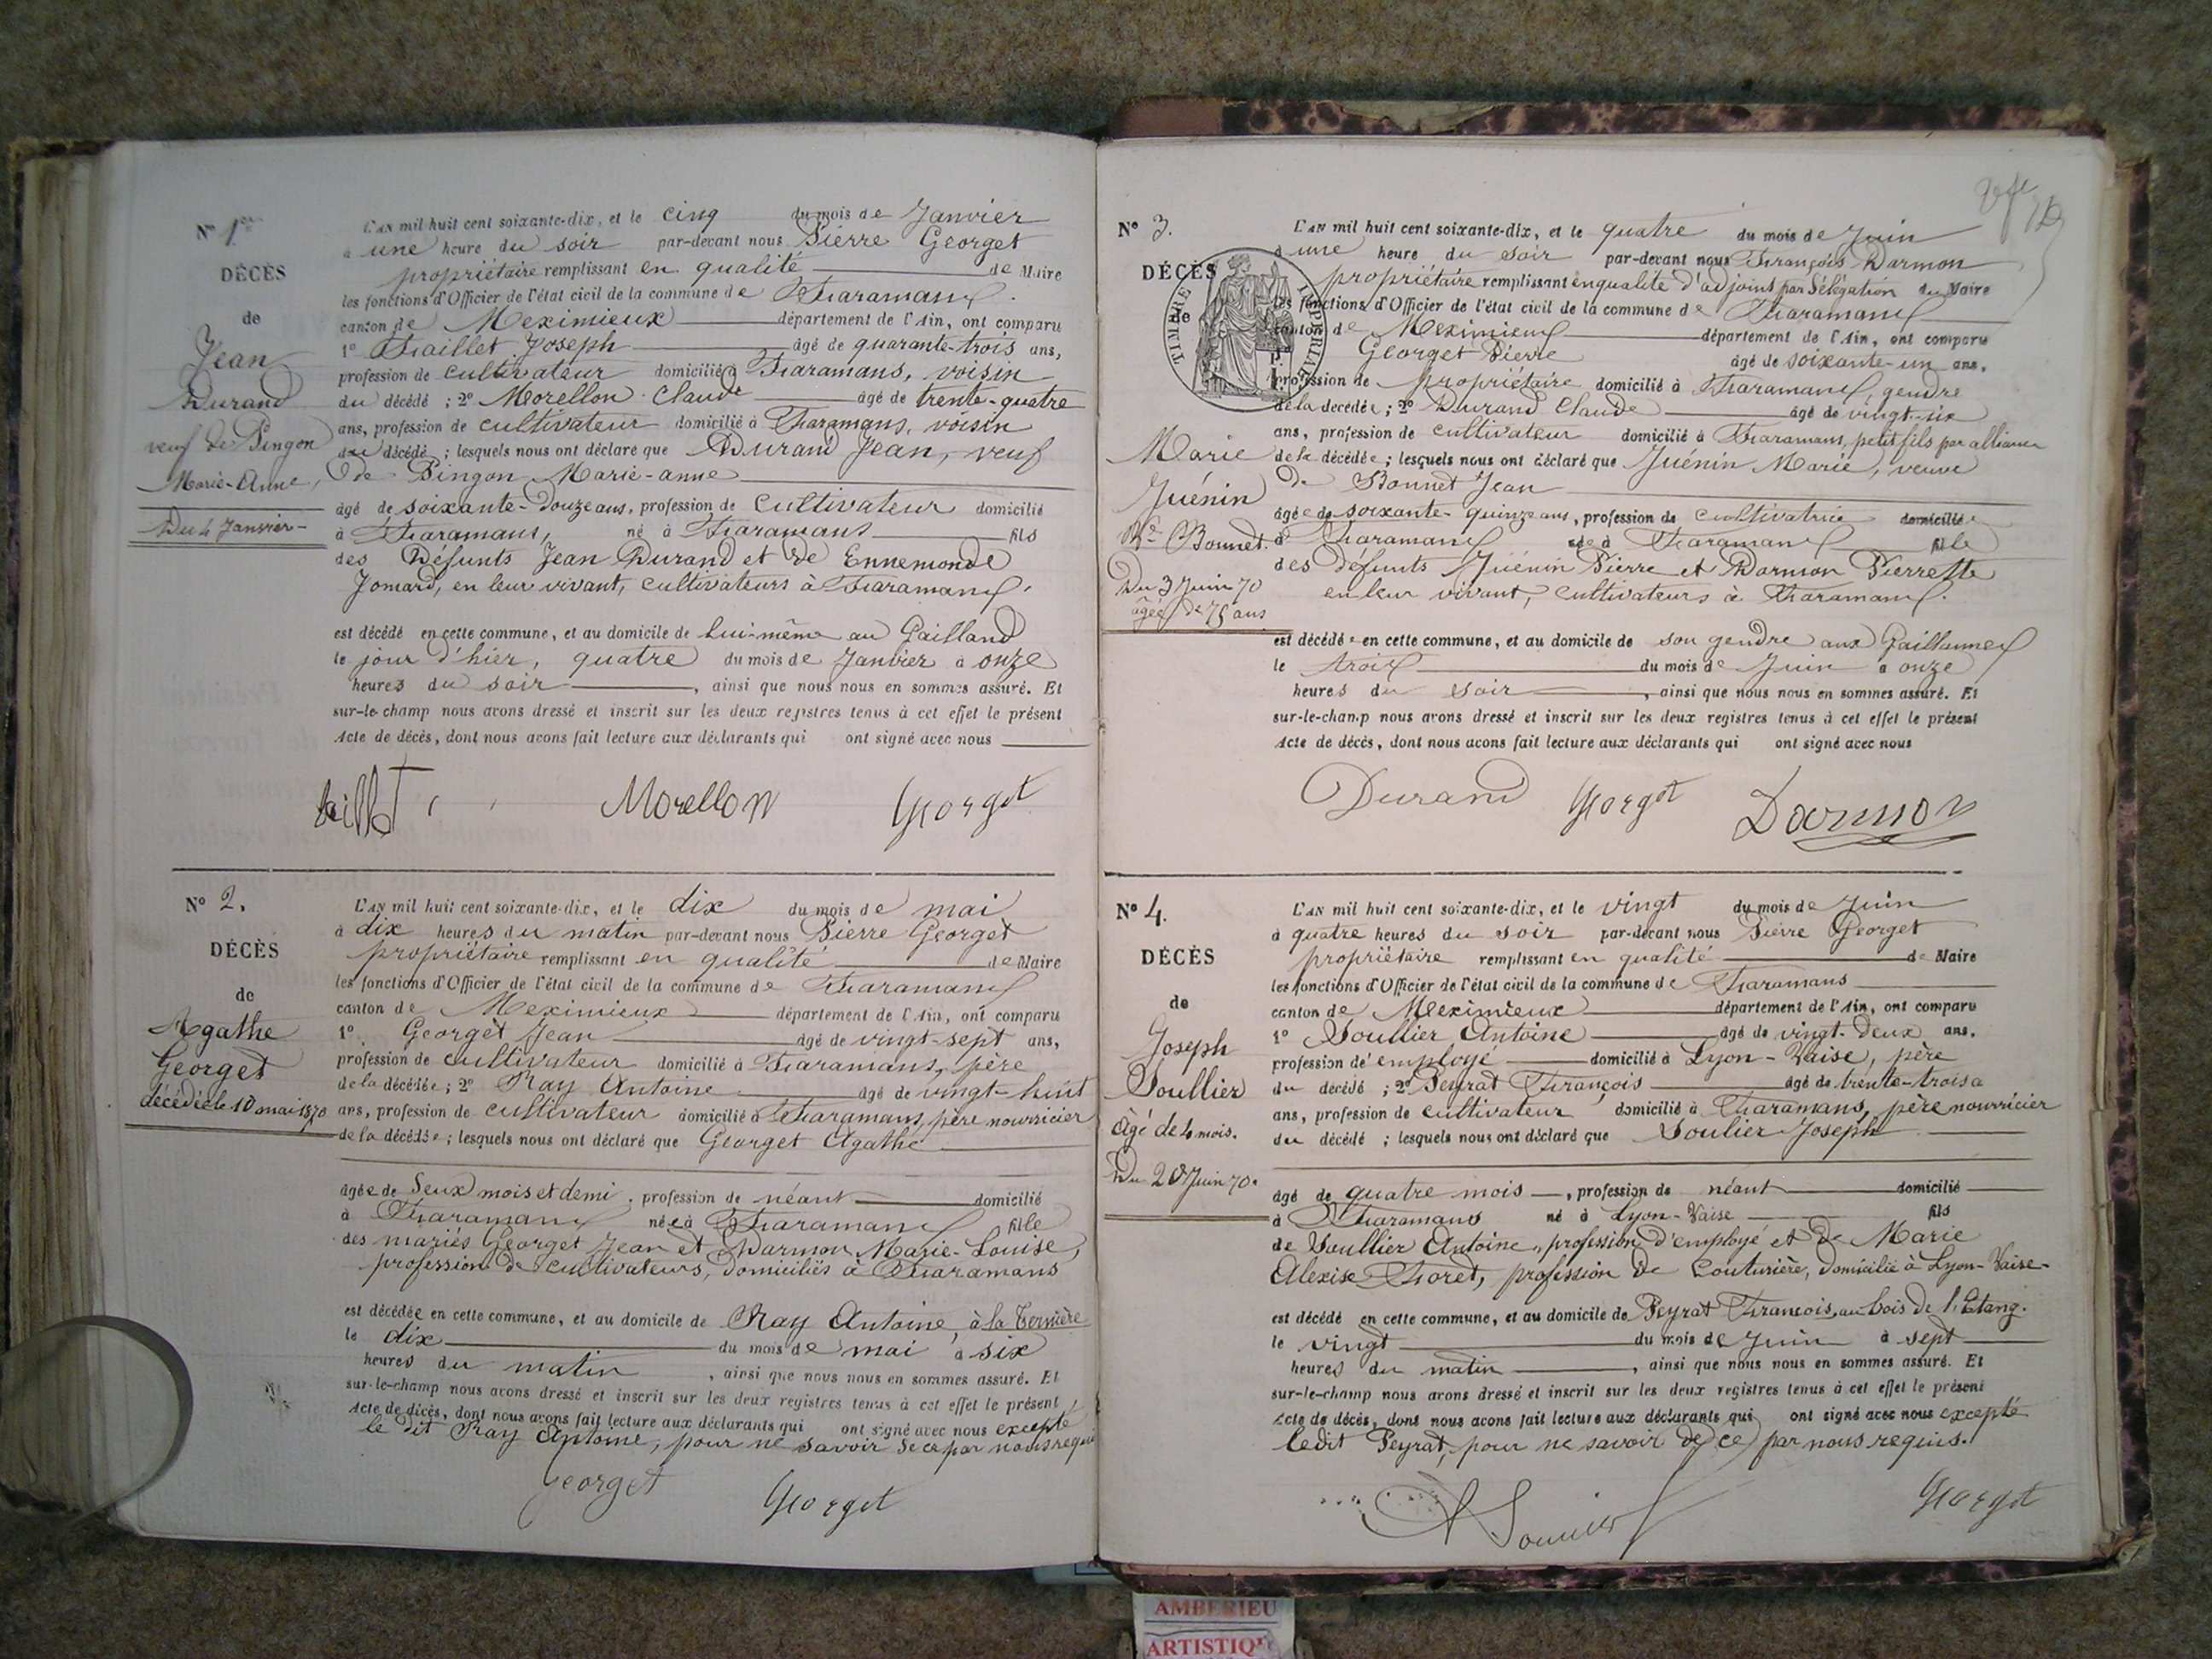 N° 1er
DÉCÈS
de
Jean
Durand
veuf de Pingon
Marie-Anne,
Du 4 Janvier
L'AN mil huit cent soixante-dix, et le cinq du mois de Janvier
à une heure du soir par-devant nous Pierre Georget
propriétaire remplissant en qualité de Maire
les fonctions d'Officier de l'état civil de la commune de Faramans
canton de Meximieux département de l'Ain, ont comparu
1° Faillet Joseph âgé de quarante-trois ans,
profession de cultivateur domicilié à Faramans, voisin
du décédé ; 2° Morellon Claude âgé de trente-quatre
ans, profession de cultivateur domicilié à Faramans, voisin
du décédé ; lesquels nous ont déclaré que Durand Jean, veuf
de Pingon Marie-anne
âgé de soixante-douze ans, profession de cultivateur domicilié
à Faramans, né à Faramans fils
des Défunts Jean Durand et de Ennemonde
Jomard, en leur vivant, cultivateurs à Faramans.
est décédé en cette commune, et au domicile de lui-même au Gailland
le jour d'hier, quatre du mois de Janvier à onze
heures du soir, ainsi que nous nous en sommes assuré. Et
sur-le-champ nous avons dressé et inscrit sur les deux registres tenus à cet effet le présent
Acte de décès, dont nous avons fait lecture aux déclarants qui ont signé avec nous
Morellon Georget
N° 2.
DÉCÈS
de
Agathe
Georget
décédée le 10 mai 1870
L'AN mil huit cent soixante-dix, et le dix du mois de mai
à dix heures du matin par-devant nous Pierre Georget
propriétaire remplissant en qualité de Maire
les fonctions d'Officier de l'état civil de la commune de Faramans
canton de Meximieux département de l'Ain, ont comparu
1° Georget Jean âgé de vingt-sept ans,
profession de cultivateur domicilié à Faramans, père
de la décédée ; 2° Ray Antoine âgé de vingt-huit
ans, profession de cultivateur domicilié à Faramans, père nourricier
de la décédée ; lesquels nous ont déclaré que Georget Agathe
âgée de deux mois et demi, profession de néant domicilié
à Faramans née à Faramans fille
des mariés Georget Jean et Darmon Marie-Louise,
profession de cultivateurs, domiciliés à Faramans
est décédée en cette commune, et au domicile de Ray Antoine, à la Ternière
le dix du mois de mai à six
heures du matin, ainsi que nous nous en sommes assuré. Et
sur-le-champ nous avons dressé et inscrit sur les deux registres tenus à cet effet le présent
Acte de décès, dont nous avons fait lecture aux déclarants qui ont signé avec nous excepté
le dit Ray Antoine, pour ne savoir de ce par nous requis
Georget Georget
N° 3.
DÉCÈS
de
TIMBRE IMPERIAL
Marie
Juénin
Ve Bonnet.
Du 3 Juin 70
âgée de 75 ans
L'AN mil huit cent soixante-dix, et le quatre du mois de Juin
à une heure du soir par-devant nous François Darmon
propriétaire remplissant en qualité d'adjoint par délégation du Maire
les fonctions d'Officier de l'état civil de la commune de Faramans
canton de Meximieux département de l'Ain, ont comparu
1° Georget Pierre âgé de soixante-un ans,
profession de propriétaire domicilié à Faramans, gendre
de la décédée ; 2° Durand Claude âgé de vingt-six
ans, profession de cultivateur domicilié à Faramans, petit fils par alliance
de la décédée ; lesquels nous ont déclaré que Juénin Marie, veuve
de Bonnet Jean
âgée de soixante-quinze ans, profession de cultivatrice domiciliée
à Faramans née à Faramans fille
des défunts Juénin Pierre et Darmon Pierrette
en leur vivant, cultivateurs à Faramans.
est décédée en cette commune, et au domicile de son gendre aux Gaillannes
le trois du mois de Juin à onze
heures du soir, ainsi que nous nous en sommes assuré. Et
sur-le-champ nous avons dressé et inscrit sur les deux registres tenus à cet effet le présent
Acte de décès, dont nous avons fait lecture aux déclarants qui ont signé avec nous
Durand Georget Darmon
N° 4.
DÉCÈS
de
Joseph
Soullier
Âgé de 4 mois.
Du 20 Juin 70.
L'AN mil huit cent soixante-dix, et le vingt du mois de Juin
à quatre heures du soir par-devant nous Pierre Georget
propriétaire remplissant en qualité de Maire
les fonctions d'Officier de l'état civil de la commune de Faramans
canton de Meximieux département de l'Ain, ont comparu
1° Soullier Antoine âgé de vingt-deux ans,
profession d'employé domicilié à Lyon-Vaise, père
du décédé ; 2° Peyrat François âgé de trente-trois
ans, profession de cultivateur domicilié à Faramans, père nourricier
du décédé ; lesquels nous ont déclaré que Soulier Joseph
âgé de quatre mois, profession de néant domicilié
à Faramans né à Lyon-Vaise fils
de Soullier Antoine, profession d'employé et de Marie
Alexise Foret, profession de Couturière, domicilié à Lyon-Vaise-
est décédé en cette commune, et au domicile de Peyrat François, au bois de l'Etang.
le vingt du mois de Juin à sept
heures du matin, ainsi que nous nous en sommes assuré. Et
sur-le-champ nous avons dressé et inscrit sur les deux registres tenus à cet effet le présent
Acte de décès, dont nous avons fait lecture aux déclarants qui ont signé avec nous excepté
ledit Peyrat, pour ne savoir de ce par nous requis.
Georget
AMBERIEU
ARTISTIQUE